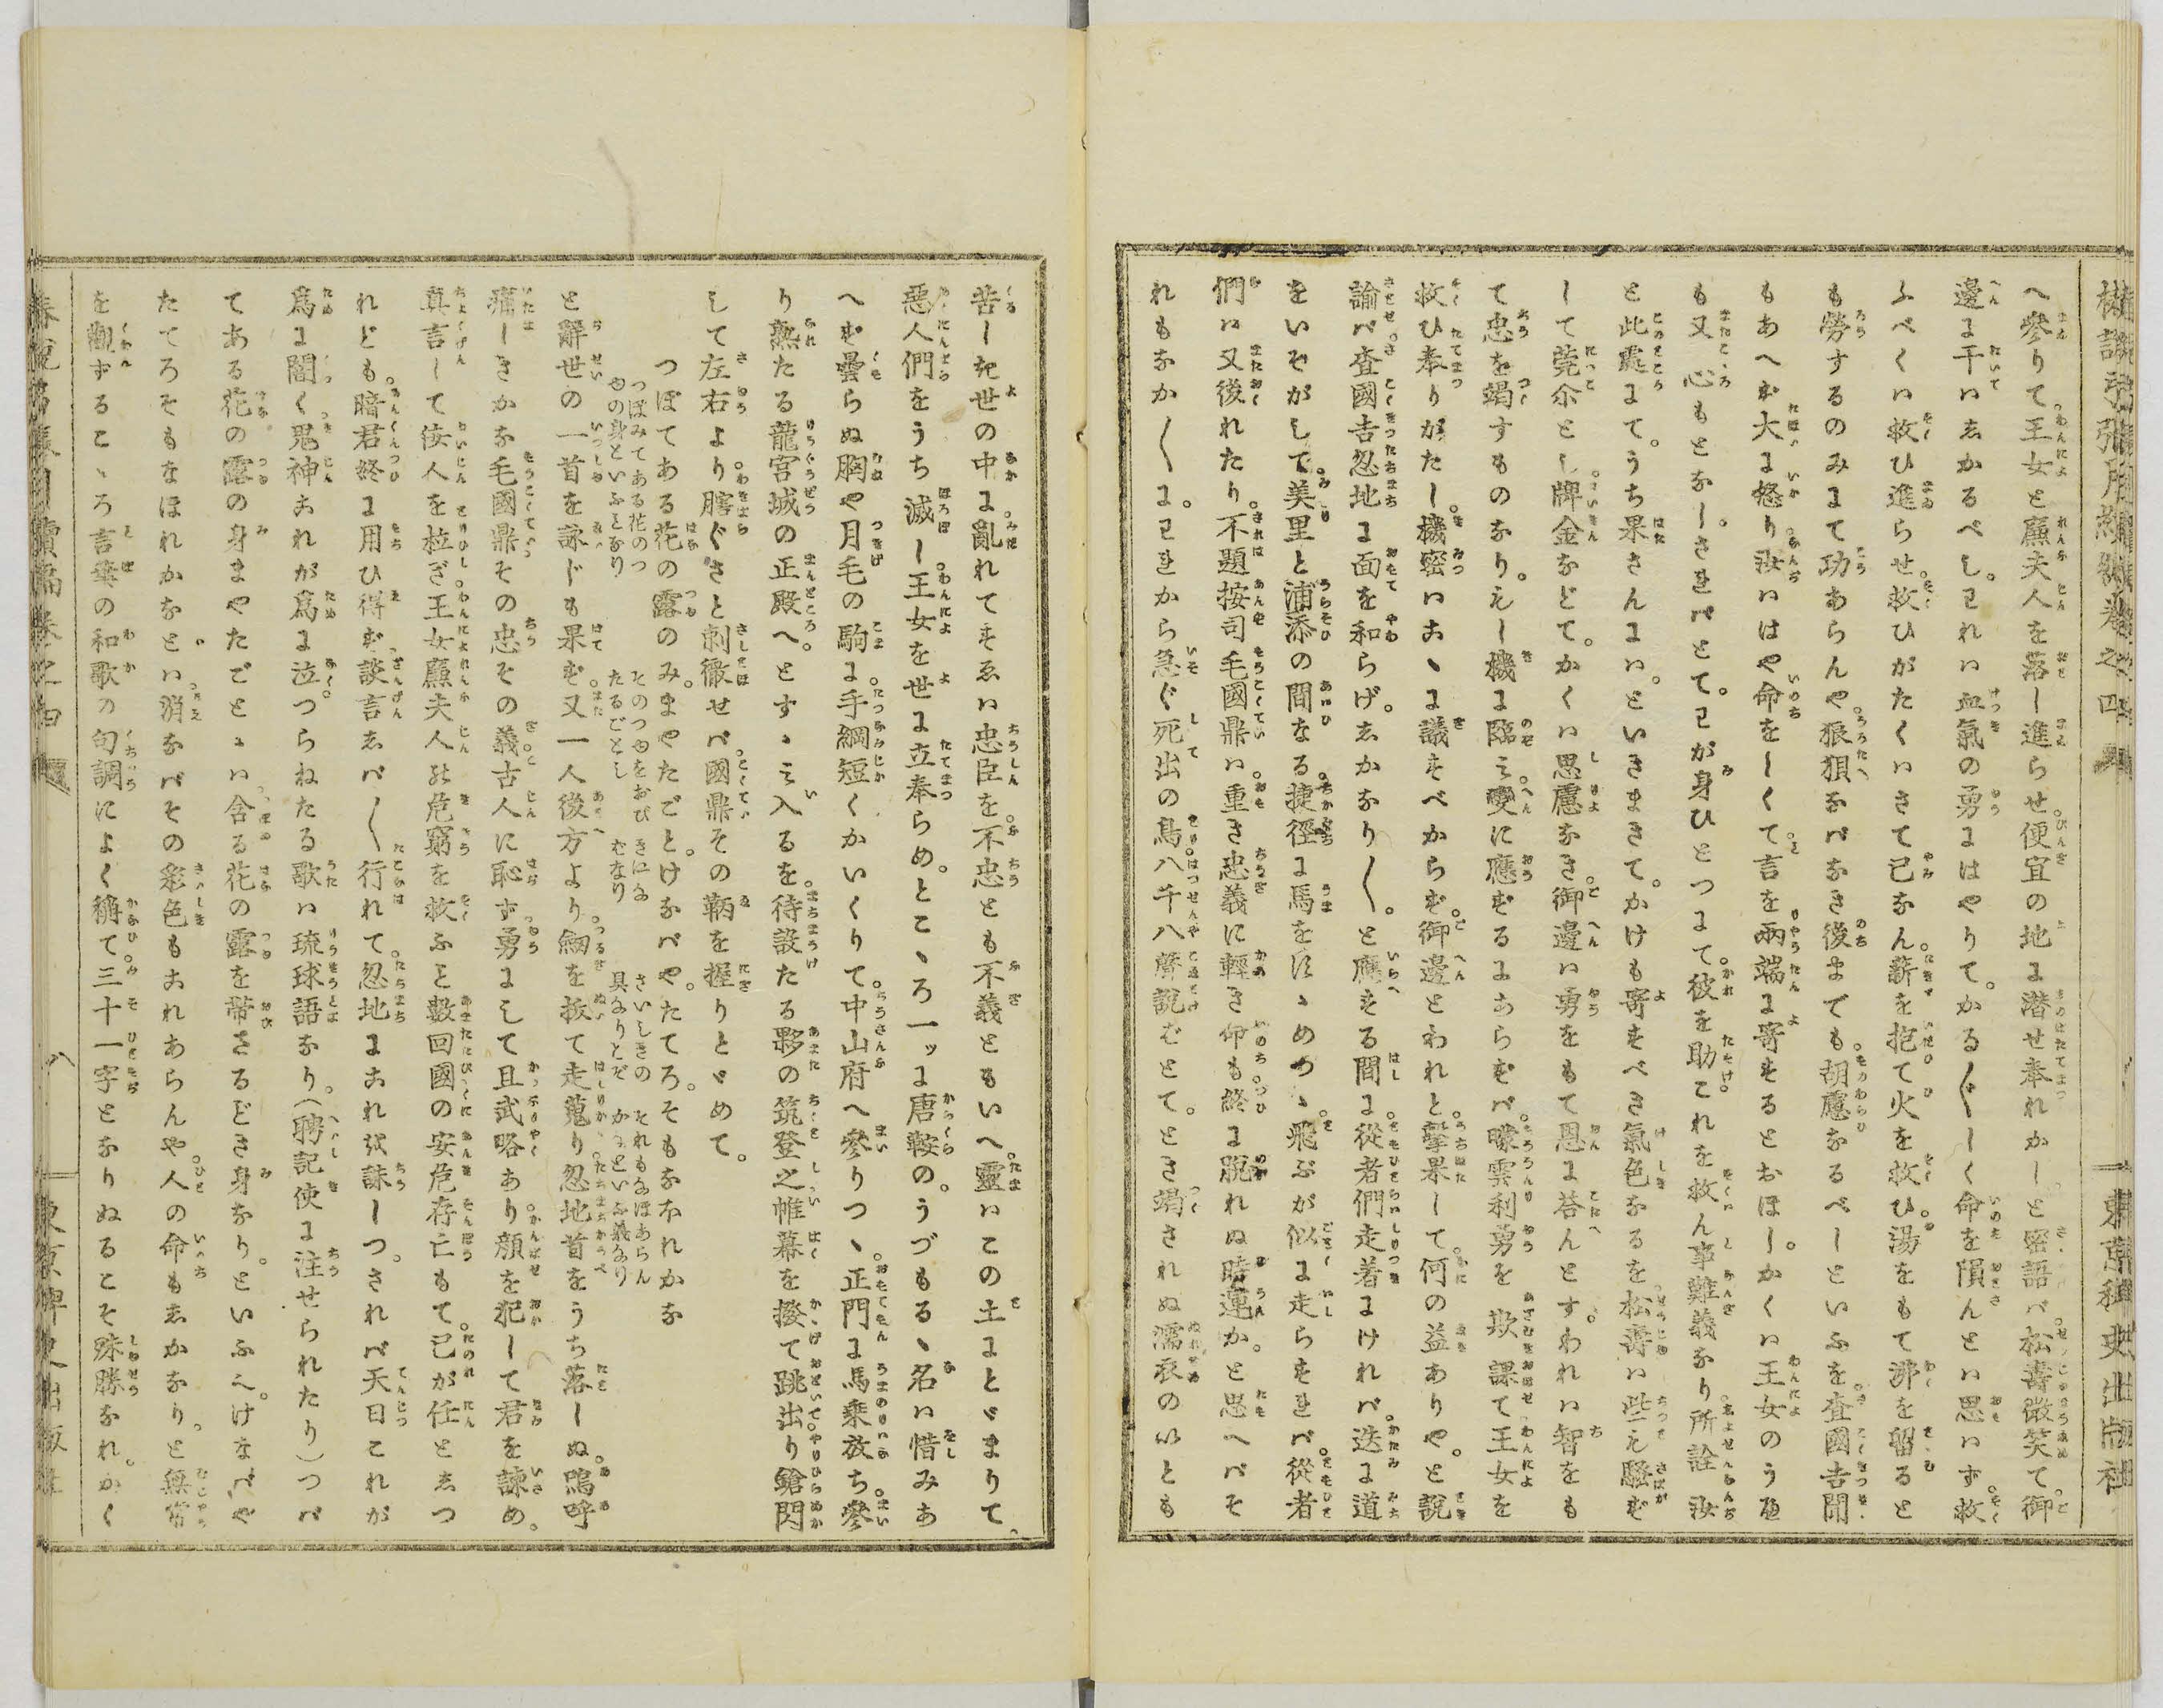 椿說弓張月續編卷之四
東京稗史出版社
へ參りて王女と廉夫人を落し進らせ便宜の地に潜せ奉れかしと密語バ松壽微笑て御
邊に于いハしかるべし。われハ血氣の勇にはやりて。かる〴〵しく命を隕んとハ思ハず救
ふべくハ救ひ進らせ。救ひがたくハさて已なん。薪を抱て火を救ひ。湯をもて沸を留ると
も勞するのみにて功あらんや。狼狽なバなき後までも。胡慮なるべしといふを査國吉聞
もあへず大に怒り。汝ハはや命をしくて。言を兩端に寄するとおほし。かくハ王女のうへ
も又。心もとなし。さればとて。わが身ひとつにて。彼を助。これを救ん事難義なり所詮汝
と此處にて。うち果さんにハ。といきまきて。かけも寄すべき氣色なるを松壽ハ些も騷ず
して莞尓とし。牌金などて。かくハ思慮なき。御邊ハ勇をもて恩に荅んとす。われハ智をも
て忠を竭すものなり。もし機に臨み。變に應ずるにあらずバ。曚雲利勇を欺課て王女を
救ひ奉りがたし。機密ハこゝに議すべからず。御邊とわれと。擊果して。何の益ありや。と說
諭せバ。査國吉忽地に面を和らげ。しかなり〳〵。と應する間に。從者們走着にけれバ。迭に道
をいそがして。美里と浦添の間なる。捷徑に馬をはゝめつゝ。飛ぶが似に走らすれバ。從者
們ハ又後れたり。不題按司毛國鼎ハ。重き忠義に輕き命も。終に脫れぬ時運か。と思へバそ
れもなか〳〵に。われから急ぐ死出の鳥。八千八聲說ばとて。とき竭されぬ濡衣のいとも
苦しき世の中に。亂れてすゑハ忠臣を。不忠とも不義ともいへ。靈ハこの土にとゞまりて。
惡人們をうち滅し。王女を世に立奉らめ。とこゝろ一ッに唐鞍の。うづもるゝ名ハ惜みあ
へず曇らぬ胸や月毛の駒に。手綱短くかいくりて。中山府へ參りつゝ。正門に馬乘放ち。參
り熟たる龍宮城の正殿へ。とすゝみ入るを。待設たる夥の筑登之帷幕を撥て跳出り。鎗閃
して左右より。膳ぐさと刺徹せバ。國鼎その鞆を握りとゞめて。
つぼてある花の露のみ。まやたごとけなバや。たてろ。そもなおれかな
つぼみてある花のつゆの身といふことなり そのつゆをおびたるごとし きになむなり さいしきの具なりとぞ それもなほあらんかなといふ義なり
と辭世の一首を詠じも果ず。又一人後方より。劒を拔て走蒐り。忽地首をうち落しぬ。嗚呼
痛しきかな毛國鼎その忠その義古人に恥ず。勇にして且武略あり。顏を犯して君を諫め。
直言して佞人を拉ぎ。王女廉夫人の危窮を救ふこと數回。國の安危存亡もて。己が任としつ
れども。暗君終に用ひ得ず。讒言しバ〳〵行れて。忽地にこれを誅しつ。されバ天日これが
爲に闇く。鬼神これが爲に泣。つらねたる歌ハ琉球語なり。（聘記使に注せられたり）つバ
てある花の露の身まやたごとゝハ。含る花の露を帶さるどき身なり。といふ也。けなバや
たてろそもなほれかなとハ。消なバその彩色もこれあらんや。人の命もしかなり。と無常
を觀ずるこゝろ言葉の和歌の句調によく稱て。三十一字となりぬるこそ殊勝なれ。かく
椿說弓張月續編卷之四
八
東京稗史出版社